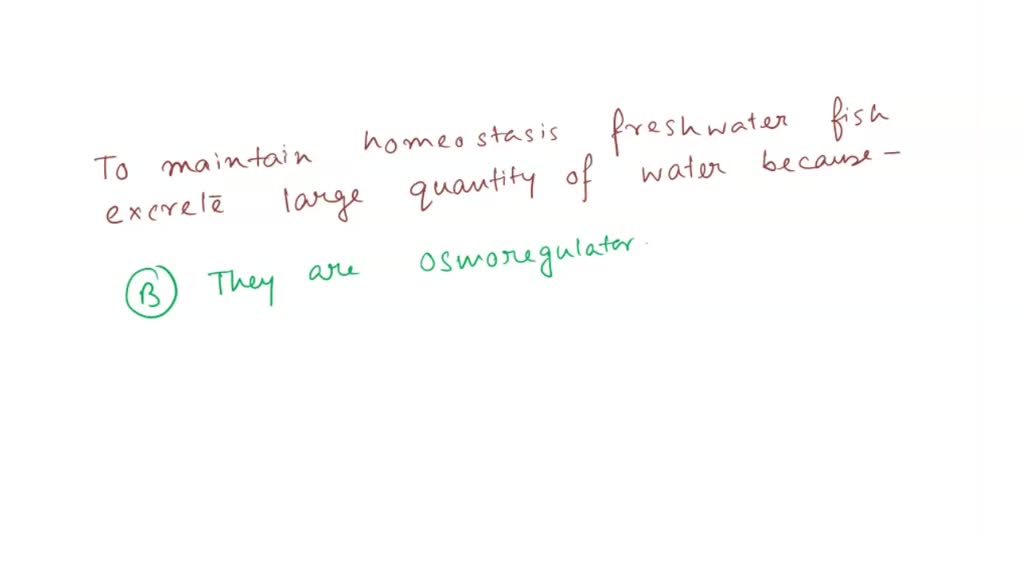 To maintain homeostasis freshwater fish
excrete large quantity of water because -
B They are osmoregulator.